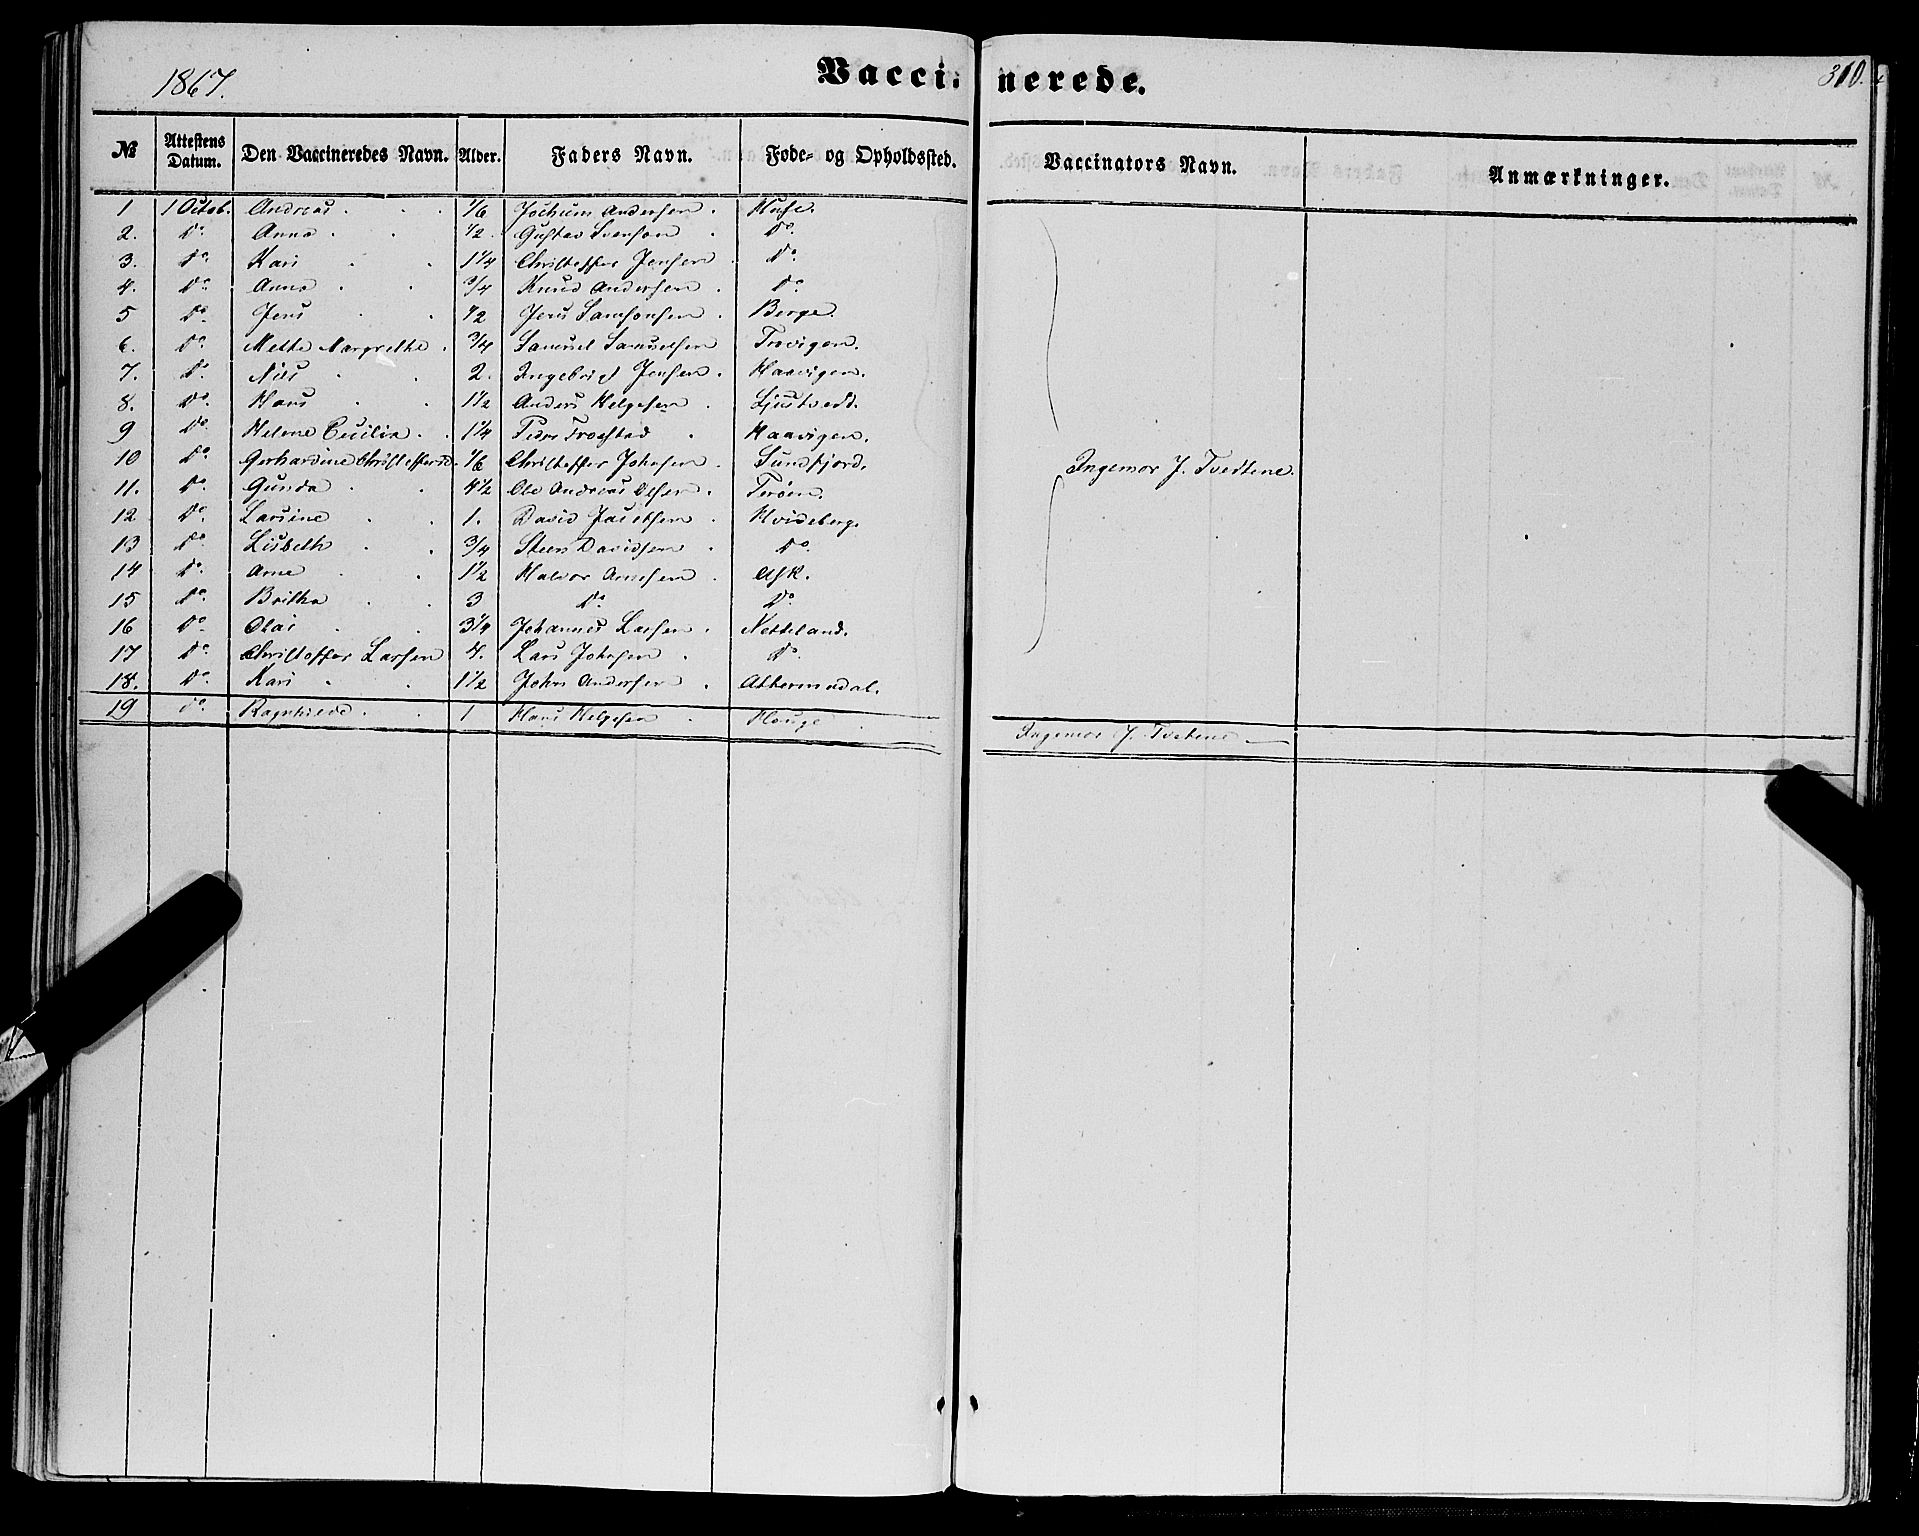 1867.
Vaccinerede.
310.
№ Attestens Datum. Den Vaccineredes Navn. Alder. Faders Navn. Føde- og Opholdssted. Vaccinators Navn. Anmærkninger.
1 1 Octob. Andreas 1/6 Jochum Andersen Huse.
2. Do. Anna 1/2 Gustav Svensen Do.
3. Do. Kari 1 1/4 Christoffer Jensen Do.
4. Do. Anna 3/4 Knud Andersen Do.
5 Do. Jens 1/2 Jens Samsonsen Berge.
6. Do. Mette Margrethe 3/4 Samuel Samuelsen Trovigen.
7. Do. Nils 2. Ingebrigt Jensen Haavigen.
8. Do. Hans 1 1/2 Anders Helgesen Ljustvedt.
9 Do. Helene Cecilia 1 1/4 Peder Haavigen.
10 Do. Gerhardine Christoffersd. 1/6 Christoffer Johnsen Sundfjord.
11. Do. Gunda 4 1/2 Ole Andreas Olsen Terøen.
12 Do. Larsine 1. David Hvideberg.
13 Do. Lisbeth 3/4 Steen Davidsen Do.
14 Do. Arne 1 1/2 Halvor Arnesen Ask.
15 Do. Britha 3 Do. Do.
16 Do. Olai 3 1/4 Johannes Larsen Netteland.
17 Do. Christoffer Larsen 4. Lars Johnsen Do.
18. Do. Kari 1 1/2 John Andersen Attermadal.
Ingemor J. Tvedtene.
19 do. Ragnhilde 1 Hans Helgesen Houge Ingemor J. Tvetene